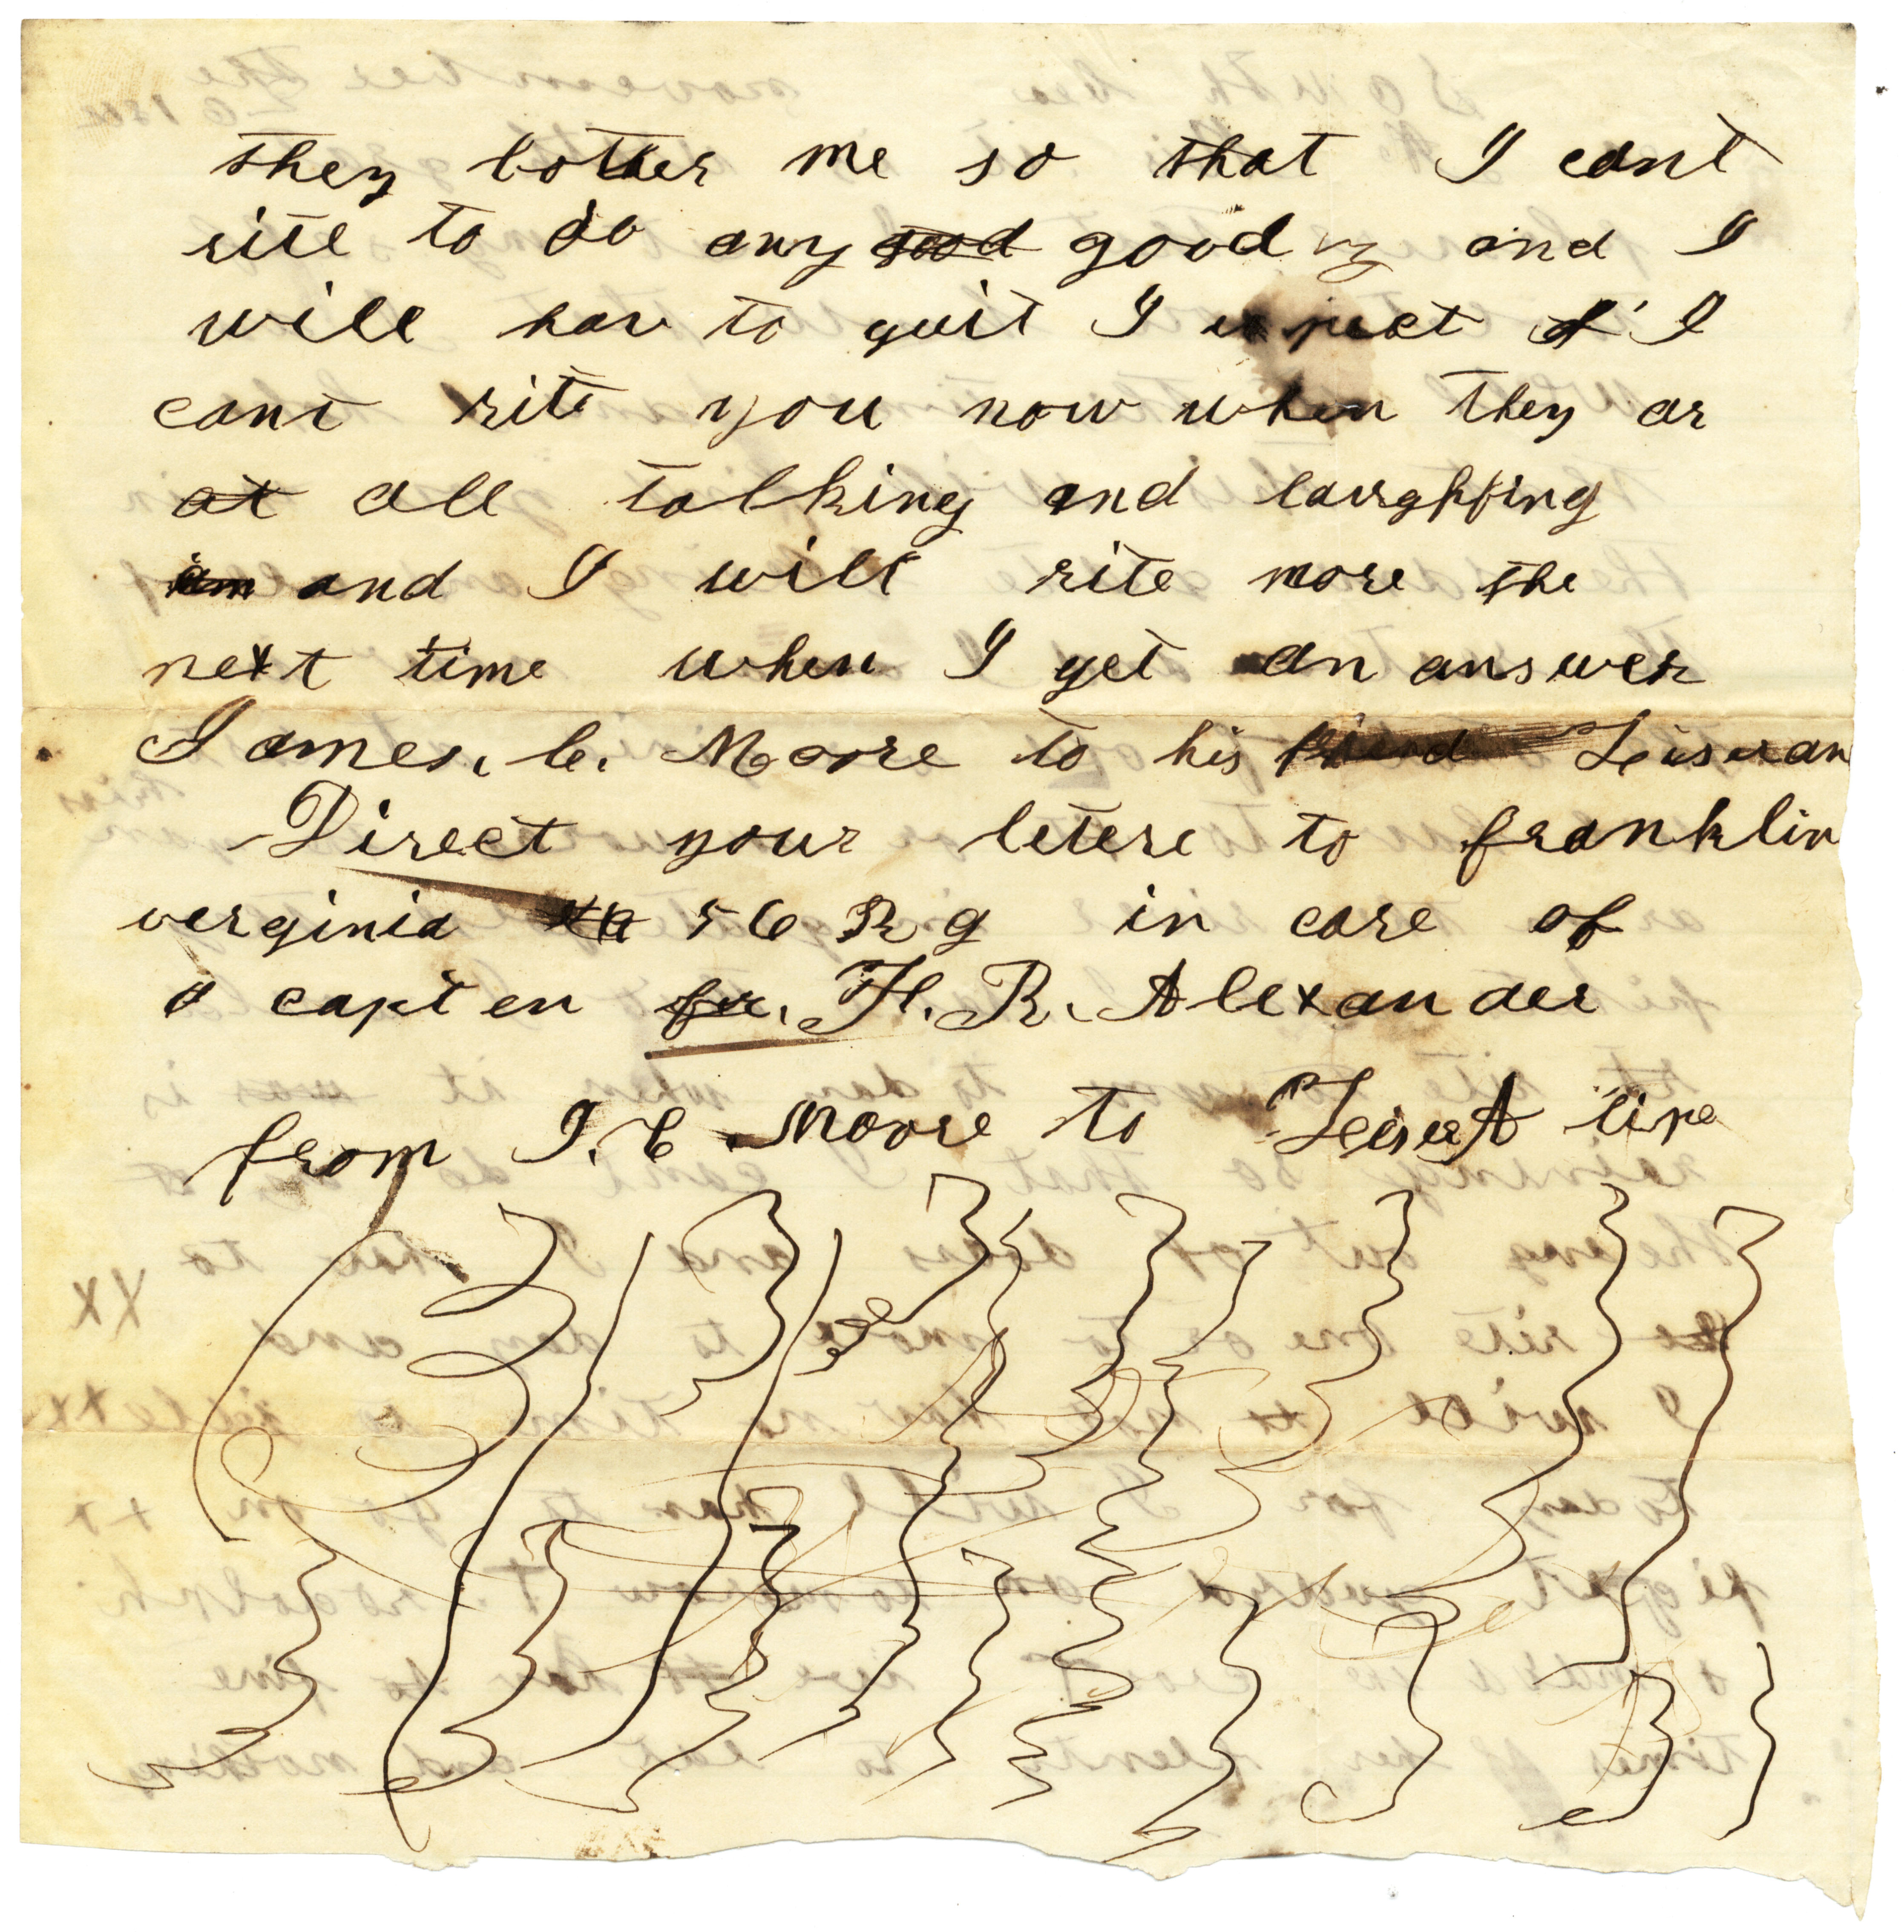 they bother me so that I cant
rite to do any good good and I
will hav to quit I expect I
cant rite you now when they ar
at all talking and laughfing
and I will rite more the
next time when I get an answer
James. C. Moore to his friend
Direct your letere to franklin
verginia 56 R g in care of
a capten H. R. Alexander
from J. C Moore to